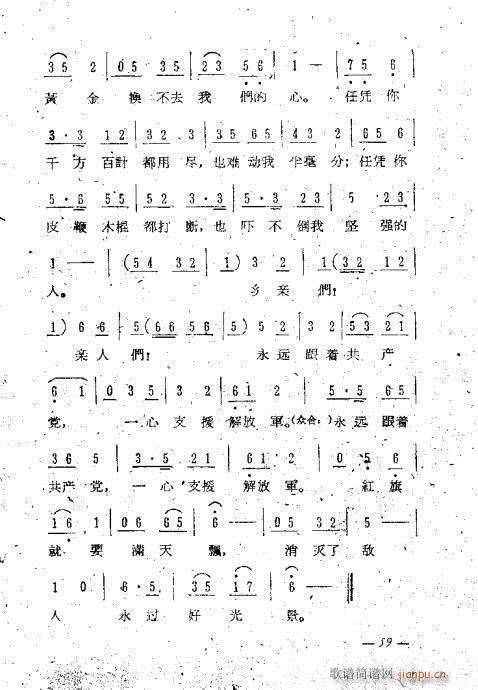 3 5 2 | 0 5 3 5 | 2 3 5 6 | 1 — | 7 5 6 |
黃 金 換 不 去 我 們 的 心。 任凭 你
3·3 1 2 | 3 2 2 3 | 3 5 6 5 | 4 3 2 | 6 5 6 |
千 方 百計 都 用 尽, 也 难 动 我 半 毫 分; 任凭 你
5·6 5 5 | 3 2 3 5 | 2·3 0 3 | 5·5 2 3 |
皮 鞭 木棍 都 打 断, 也 吓 不 倒 我 坚 强 的
1 — | (5 4 3 2 | 1) 3 2 | 1 (3 2 1 2 |
人。 乡 亲 們!
1) 6 6 | 5 (6 6 5 6 | 5) 3 2 | 3 2 | 5 3 2 1 |
亲 人 們! 永 远 跟 着 共 产
6 1 | 0 3 5 | 3 2 | 6 1 2 | 5·5 6 5 |
党, 一心 支 援 解放 軍。(众合:)永 远 跟着
3 6 5 | 3·5 2 1 | 6 1 2 | 0 5 6 |
共产 党, 一 心 支援 解放 軍。 紅 旗
1 6 1 | 0 6 6 5 | 6 — | 0 5 3 2 | 5 — |
就 要 满 天 飄, 消 灭 了 敌
1 0 | 6·5 | 3 5 1 7 | 6 — ‖
人 永 过 好 光 景。
— 59 —
歌谱简谱网 jianpu.cn